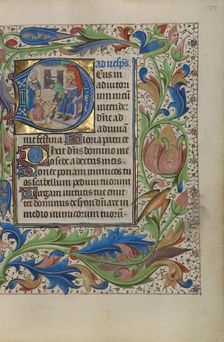 ad uesp̄s.
Deus in
adiutori
um meū
intende
dn̄e ad
adiuua
me festina Gloria patri et
Dixit dn̄s domino
meo sede a dextris meis.
Donec ponam inimicos tu
os scabellum pedum tuorum
Virgam uirtutis tue emitt
et dominus ex syon dn̄are in
medio inimicorum tuorū.